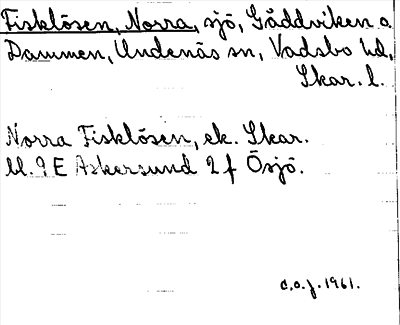 Fisklösen, Norra, sjö, Gäddviken o.
Dammen, Undenäs sn, Vadsbo hd,
Skar. l.
Norra Fisklösen, ek. Skar.
bl. 9 E Askersund 2 f Ösjö.
c.o.j. 1961.